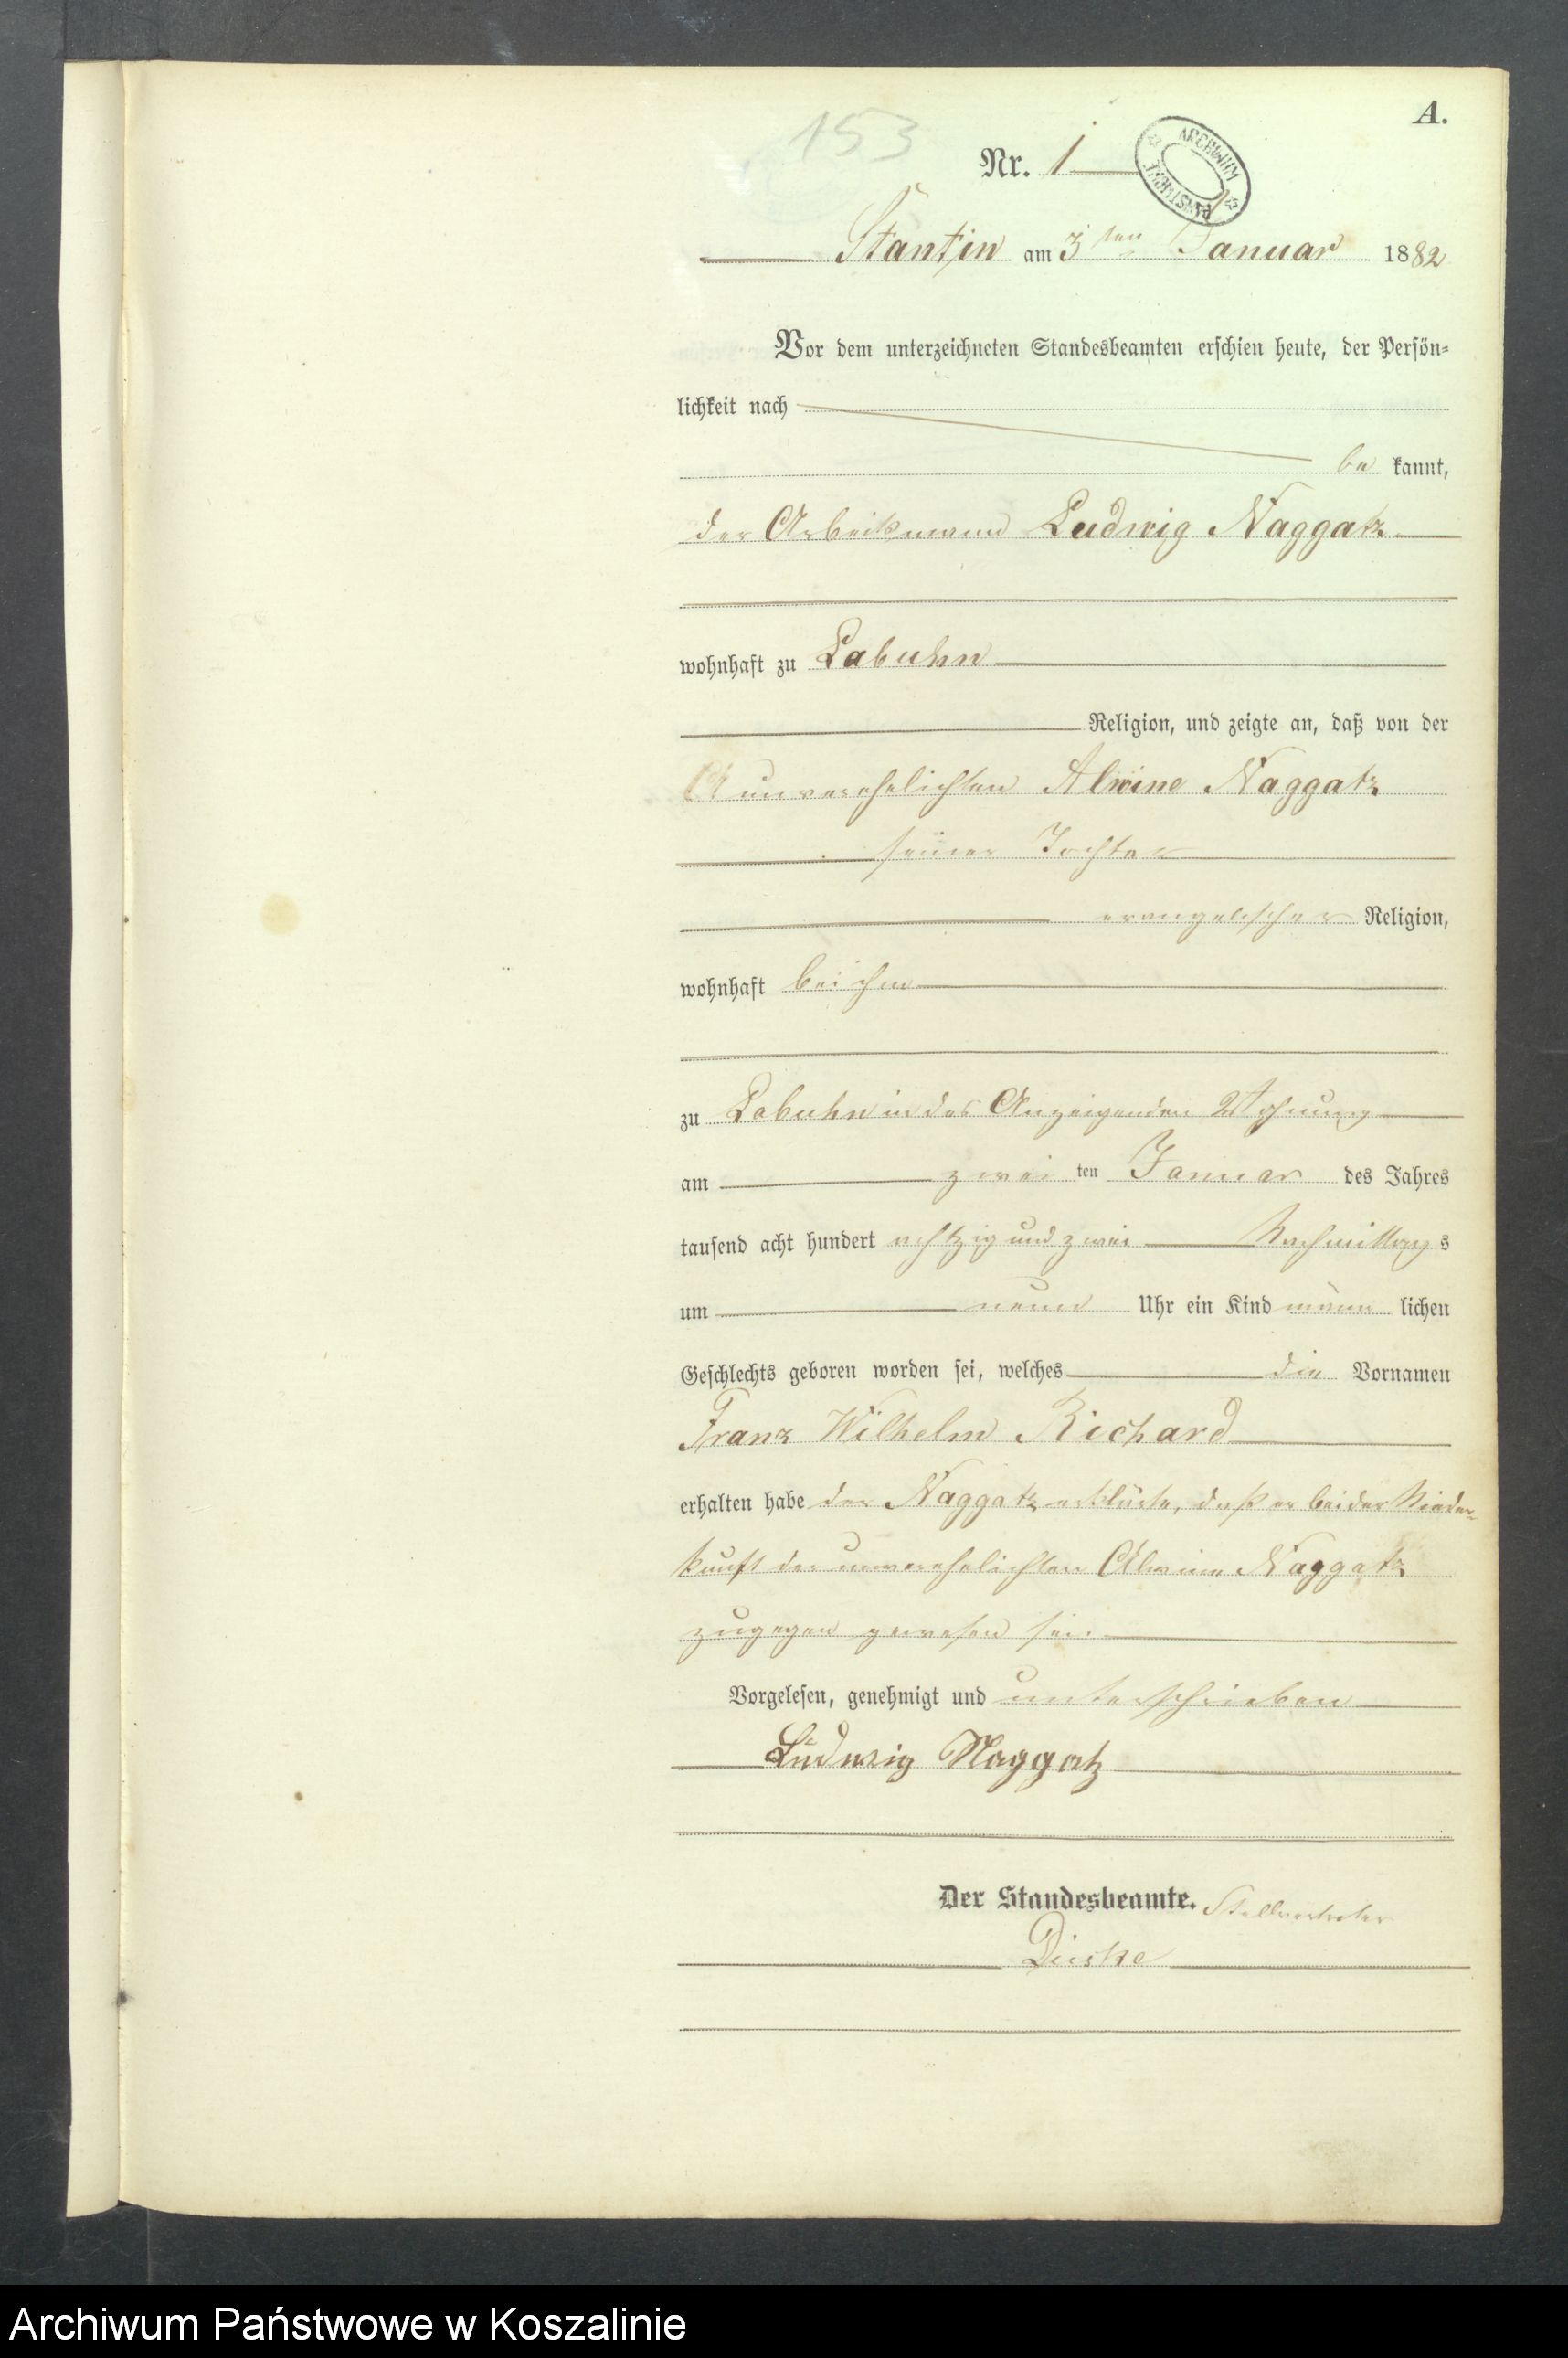 A.
153
Nr. 1
ARCHIWUM PAŃSTWOWE
Stantin am 3ten Januar 1882
Vor dem unterzeichneten Standesbeamten erschien heute, der Persön-
lichkeit nach
be kannt,
der Arbeitsmann Ludwig Naggatz
wohnhaft zu Labuhn
Religion, und zeigte an, daß von der
unverehelichten Alwine Naggatz
seiner Tochter
evangelischer Religion,
wohnhaft bei ihm
zu Labuhn in des Anzeigenden Wohnung
am zwei ten Januar des Jahres
tausend acht hundert achtzig und zwei Nachmittags
um neun Uhr ein Kind männ lichen
Geschlechts geboren worden sei, welches die Vornamen
Franz Wilhelm Richard
erhalten habe der Naggatz erklärte, daß er bei der Nieder-
kunft der unverehelichten Alwine Naggatz
zugegen gewesen sei.
Vorgelesen, genehmigt und unterschrieben
Ludwig Naggatz
Der Standesbeamte. Stellvertreter
Archiwum Państwowe w Koszalinie